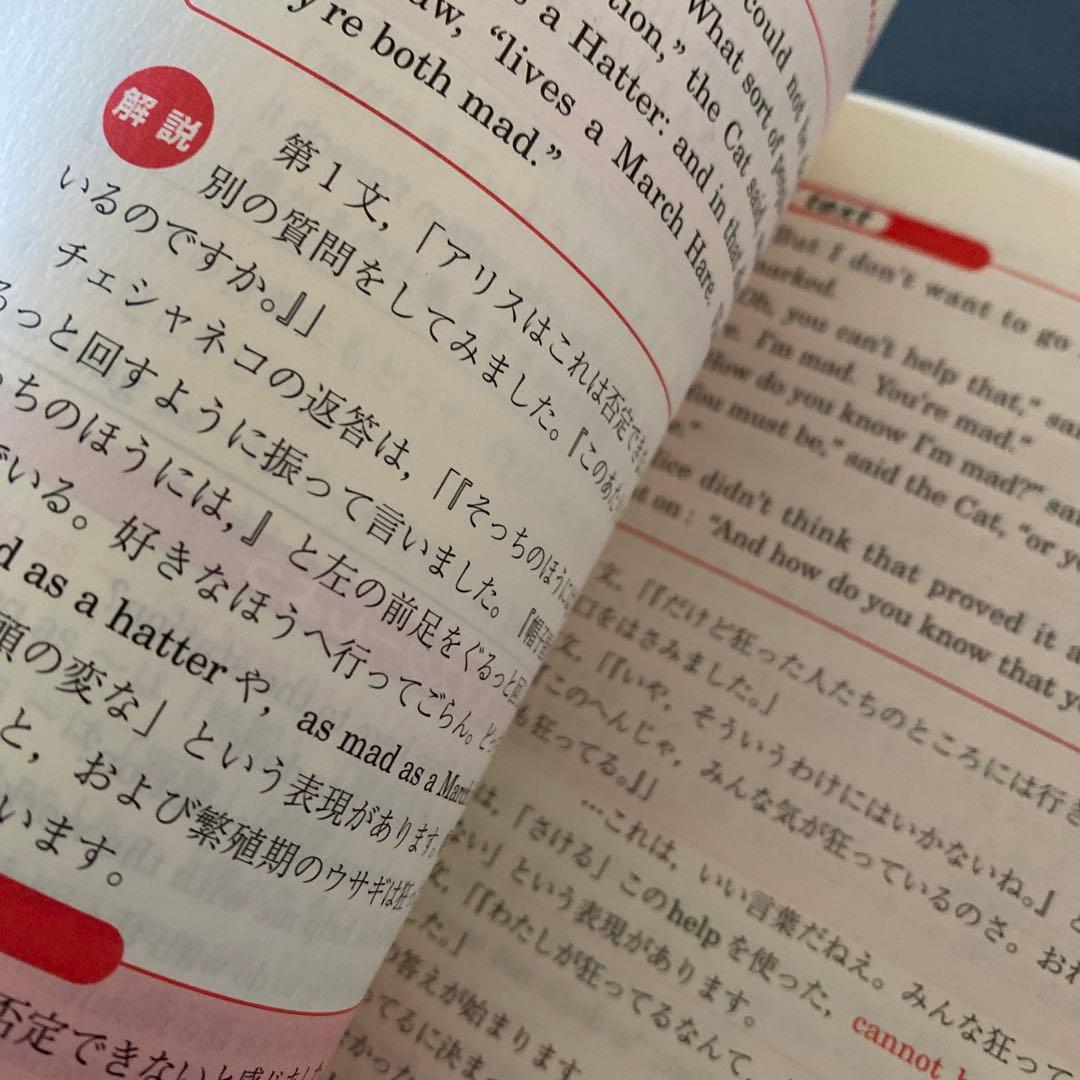 could not be
tion," the Cat said,
What sort of people
s a Hatter: and in that
aw, "lives a March Hare.
y're both mad."
解説
第1文，「アリスはこれは否定でき
別の質問をしてみました。『このあた
いるのですか。』」
チェシャネコの返答は，「『そっちのほうに
っと回すように振って言いました。『帽子
っちのほうには，』と左の前足をぐるっと
でいる。好きなほうへ行ってごらん。ど
d as a hatter や，as mad as a March
頭の変な」という表現があります。
と，および繁殖期のウサギは狂
います。
否定できないと感じました
text
But I don't want to go
marked.
Oh, you can't help that," sa
e. I'm mad. You're mad."
How do you know I'm mad?" sa
You must be," said the Cat, "or yo
e."
ice didn't think that proved it a
t on: "And how do you know that y
文，「『だけど狂った人たちのところには行き
口をはさみました。」
文，「『いや，そういうわけにはいかないね。』と
『このへんじゃ，みんな気が狂っているのさ。おれ
も狂ってる。』」
…これは，いい言葉だねえ。みんな狂って
は，「さける」このhelpを使った，cannot h
ない」という表現があります。
文，「『わたしが狂ってるなんて，
た。」
の答えが始まります
ってるに決ま
かった